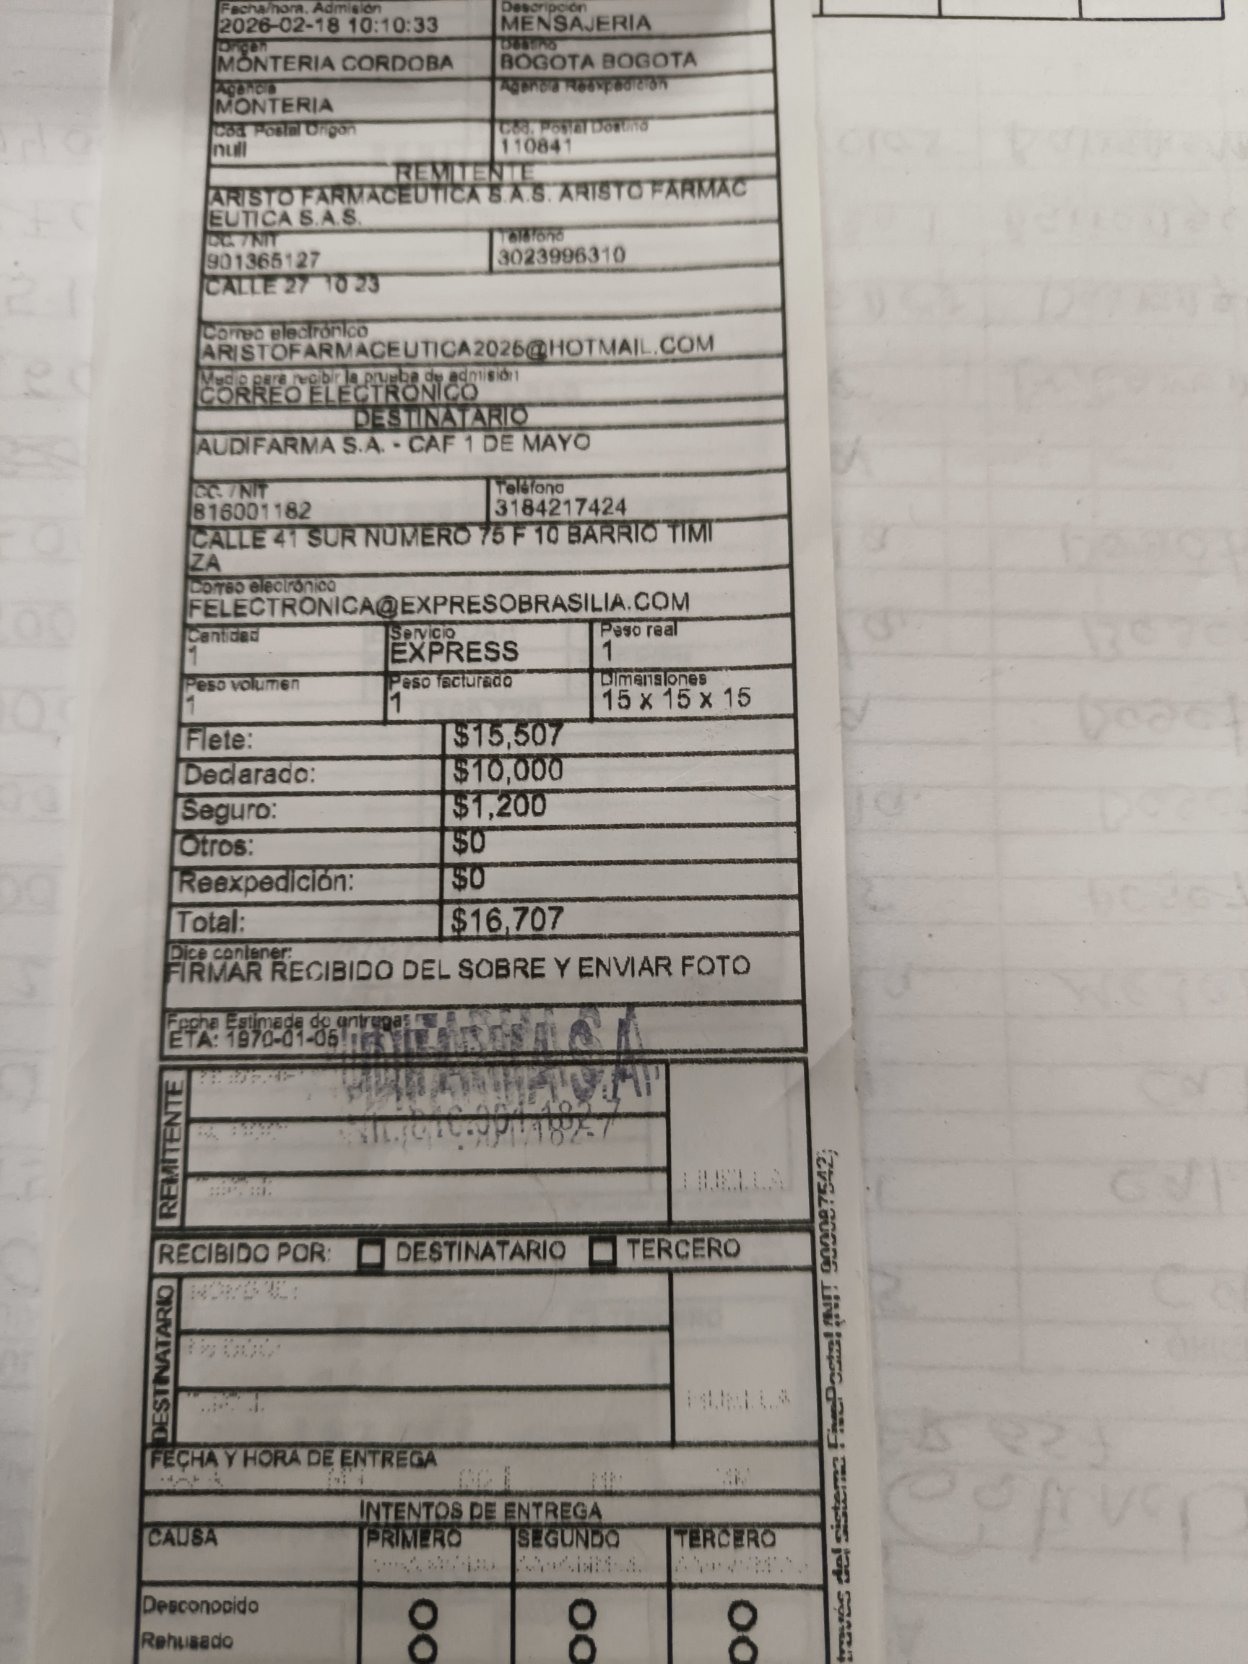 Fecha/hora. Admisión Descripción
2026-02-18 10:10:33 MENSAJERIA
Origen Destino
MONTERIA CORDOBA BOGOTA BOGOTA
Agencia Agencia Reexpedición
MONTERIA
Cód. Postal Origen Cód. Postal Destino
null 110841
REMITENTE
ARISTO FARMACEUTICA S.A.S. ARISTO FARMAC
EUTICA S.A.S.
CC. / NIT Teléfono
901365127 3023996310
CALLE 27 10 23
Correo electrónico
ARISTOFARMACEUTICA2025@HOTMAIL.COM
Medio para recibir la prueba de admisión
CORREO ELECTRÓNICO
DESTINATARIO
AUDIFARMA S.A. - CAF 1 DE MAYO
CC. / NIT Teléfono
816001182 3184217424
CALLE 41 SUR NUMERO 75 F 10 BARRIO TIMI
ZA
Correo electrónico
FELECTRONICA@EXPRESOBRASILIA.COM
Cantidad Servicio Peso real
1 EXPRESS 1
Peso volumen Peso facturado Dimensiones
1 1 15 x 15 x 15
Flete: $15,507
Declarado: $10,000
Seguro: $1,200
Otros: $0
Reexpedición: $0
Total: $16,707
Dice contener:
FIRMAR RECIBIDO DEL SOBRE Y ENVIAR FOTO
Fecha Estimada de entrega:
ETA: 1970-01-05
REMITENTE
HUELLA
RECIBIDO POR: DESTINATARIO TERCERO
DESTINATARIO
NOMBRE:
HUELLA
FECHA Y HORA DE ENTREGA
INTENTOS DE ENTREGA
CAUSA PRIMERO SEGUNDO TERCERO
Desconocido
Rehusado